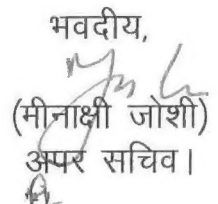 भवदीय,
(मीनाक्षी जोशी)
अपर सचिव।